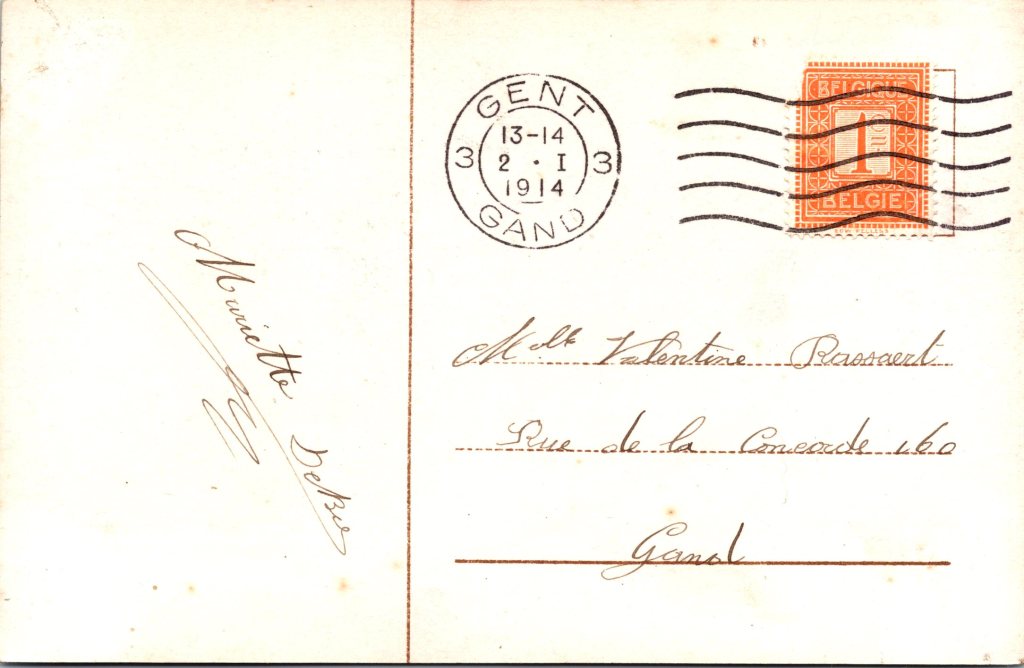 GENT
13-14
3 2 · I 3
1914
GAND
BELGIQUE
1
BELGIË
Mariette
Mlle Valentine Rossaert
Rue de la Concorde 160
Gand